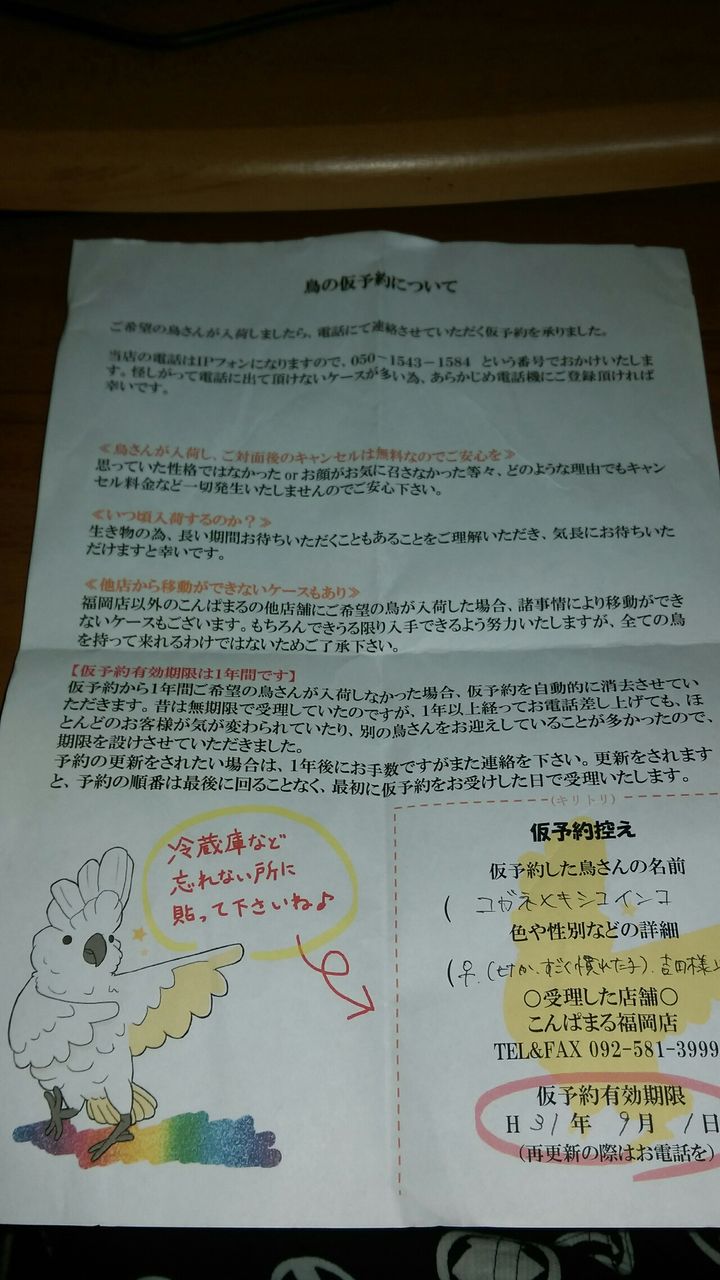 鳥の仮予約について
ご希望の鳥さんが入荷しましたら、電話にて連絡させていただく仮予約を承りました。
当店の電話はIPフォンになりますので、050-1543-1584 という番号でおかけいたしま
す。怪しがって電話に出て頂けないケースが多い為、あらかじめ電話機にご登録頂ければ
幸いです。
≪鳥さんが入荷し、ご対面後のキャンセルは無料なのでご安心を≫
思っていた性格ではなかった or お顔がお気に召さなかった等々、どのような理由でもキャン
セル料金など一切発生いたしませんのでご安心下さい。
≪いつ頃入荷するのか？≫
生き物の為、長い期間お待ちいただくこともあることをご理解いただき、気長にお待ちいた
だけますと幸いです。
≪他店から移動ができないケースもあり≫
福岡店以外のこんぱまるの他店舗にご希望の鳥が入荷した場合、諸事情により移動ができ
ないケースもございます。もちろんできうる限り入手できるよう努力いたしますが、全ての鳥
を持って来れるわけではないためご了承下さい。
【仮予約有効期限は1年間です】
仮予約から1年間ご希望の鳥さんが入荷しなかった場合、仮予約を自動的に消去させてい
ただきます。昔は無期限で受理していたのですが、1年以上経ってお電話差し上げても、ほ
とんどのお客様が気が変わられていたり、別の鳥さんをお迎えしていることが多かったので、
期限を設けさせていただきました。
予約の更新をされたい場合は、1年後にお手数ですがまた連絡を下さい。更新をされます
と、予約の順番は最後に回ることなく、最初に仮予約をお受けした日で受理いたします。
(キリトリ)
冷蔵庫など
忘れない所に
貼って下さいね♪
仮予約控え
仮予約した鳥さんの名前
( コガネメキシコインコ
色や性別などの詳細
(♀. すごく慣れた子). 吉田様
○受理した店舗○
こんぱまる福岡店
TEL&FAX 092-581-3999
仮予約有効期限
H 31年 9月 1日
(再更新の際はお電話を)